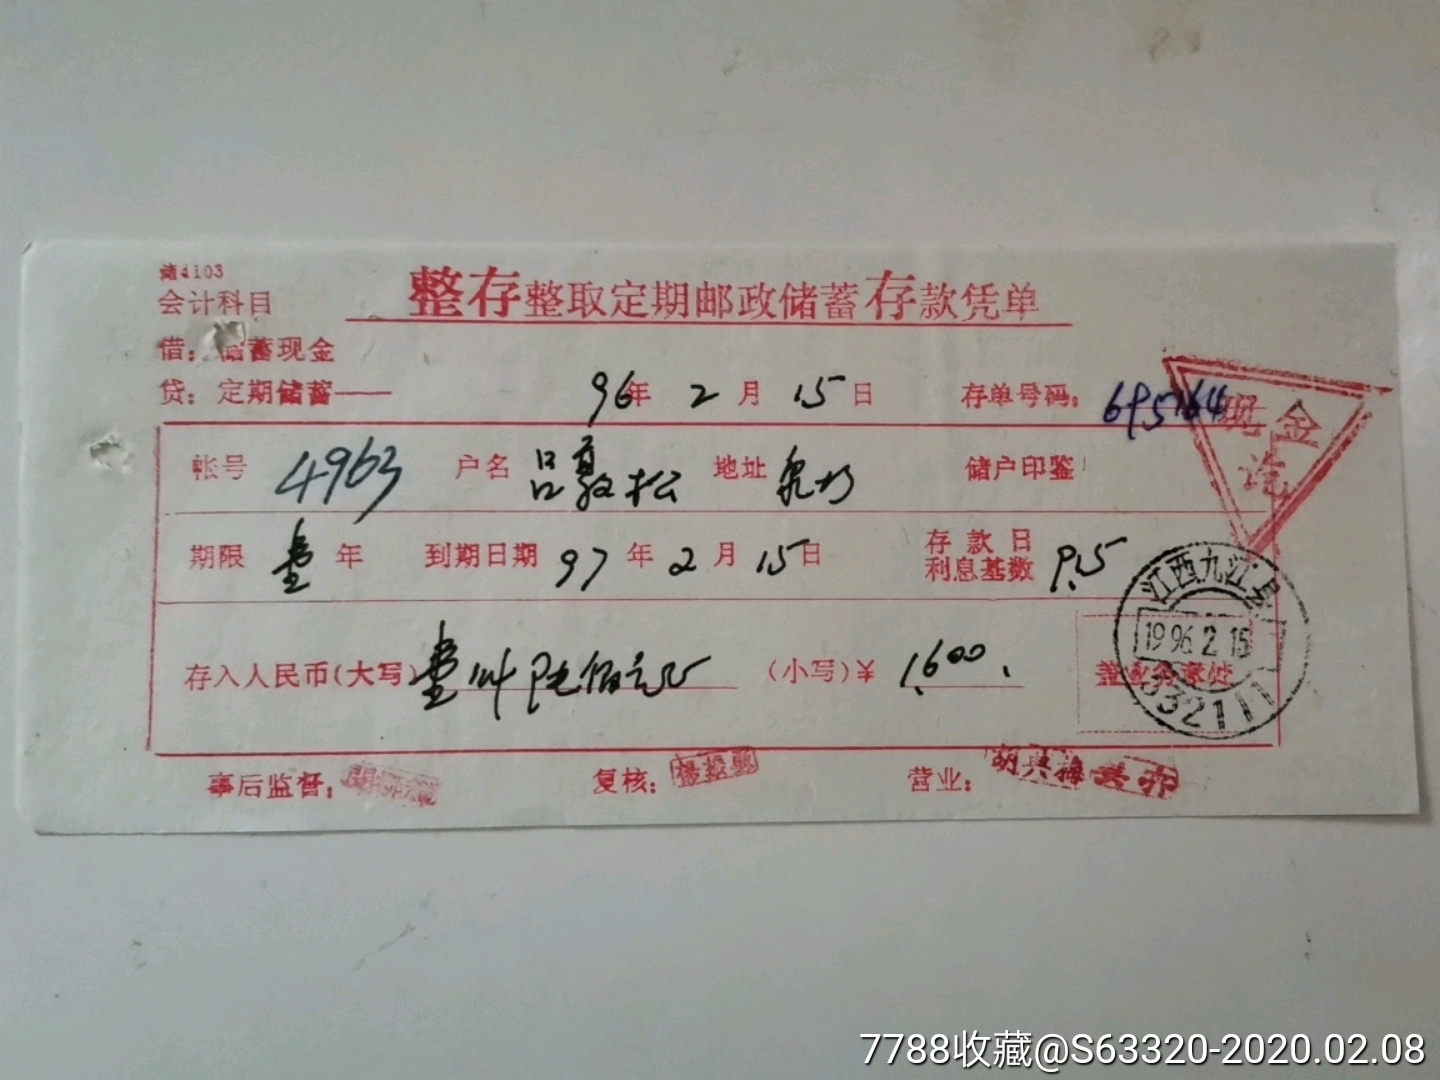 储4103
会计科目
整存整取定期邮政储蓄存款凭单
借：储蓄现金
贷：定期储蓄——
96年 2月 15日 存单号码：695164
现金
讫
帐号 4963 户名 吕敦松 地址 储户印鉴
期限 壹年 到期日期 97年 2月 15日 存款日
利息基数 9.15
江西九江县
1996.2.15
332111
存入人民币(大写) 壹仟陆佰元正 (小写)¥ 1,600.
盖业务章处
事后监督： 复核： 营业：
7788收藏@S63320-2020.02.08